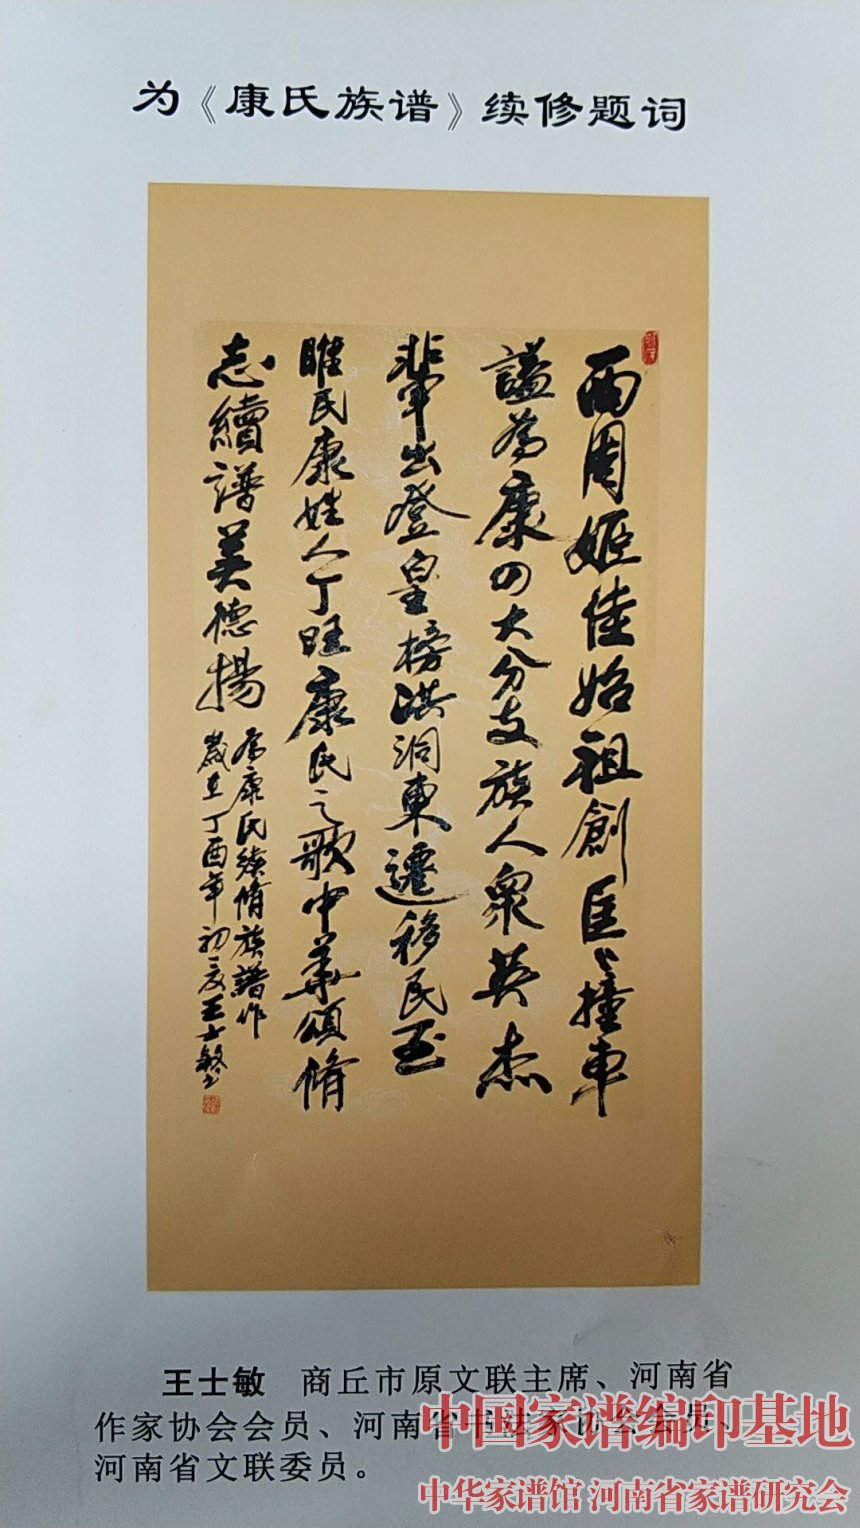 为《康氏族谱》续修题词
西周姬佳始祖創臣撞車
謚為康四大分支族人衆英杰
輩出登皇榜洪洞東遷移民至
睢民康姓人丁旺康氏之歌中華頌脩
志續譜美德揚
為康氏續脩族譜作
歲在丁酉年初夏王士敏
王士敏 商丘市原文联主席、河南省
作家协会会员、河南省书法家协会会员、
河南省文联委员。
中国家谱编印基地
中华家谱馆 河南省家谱研究会